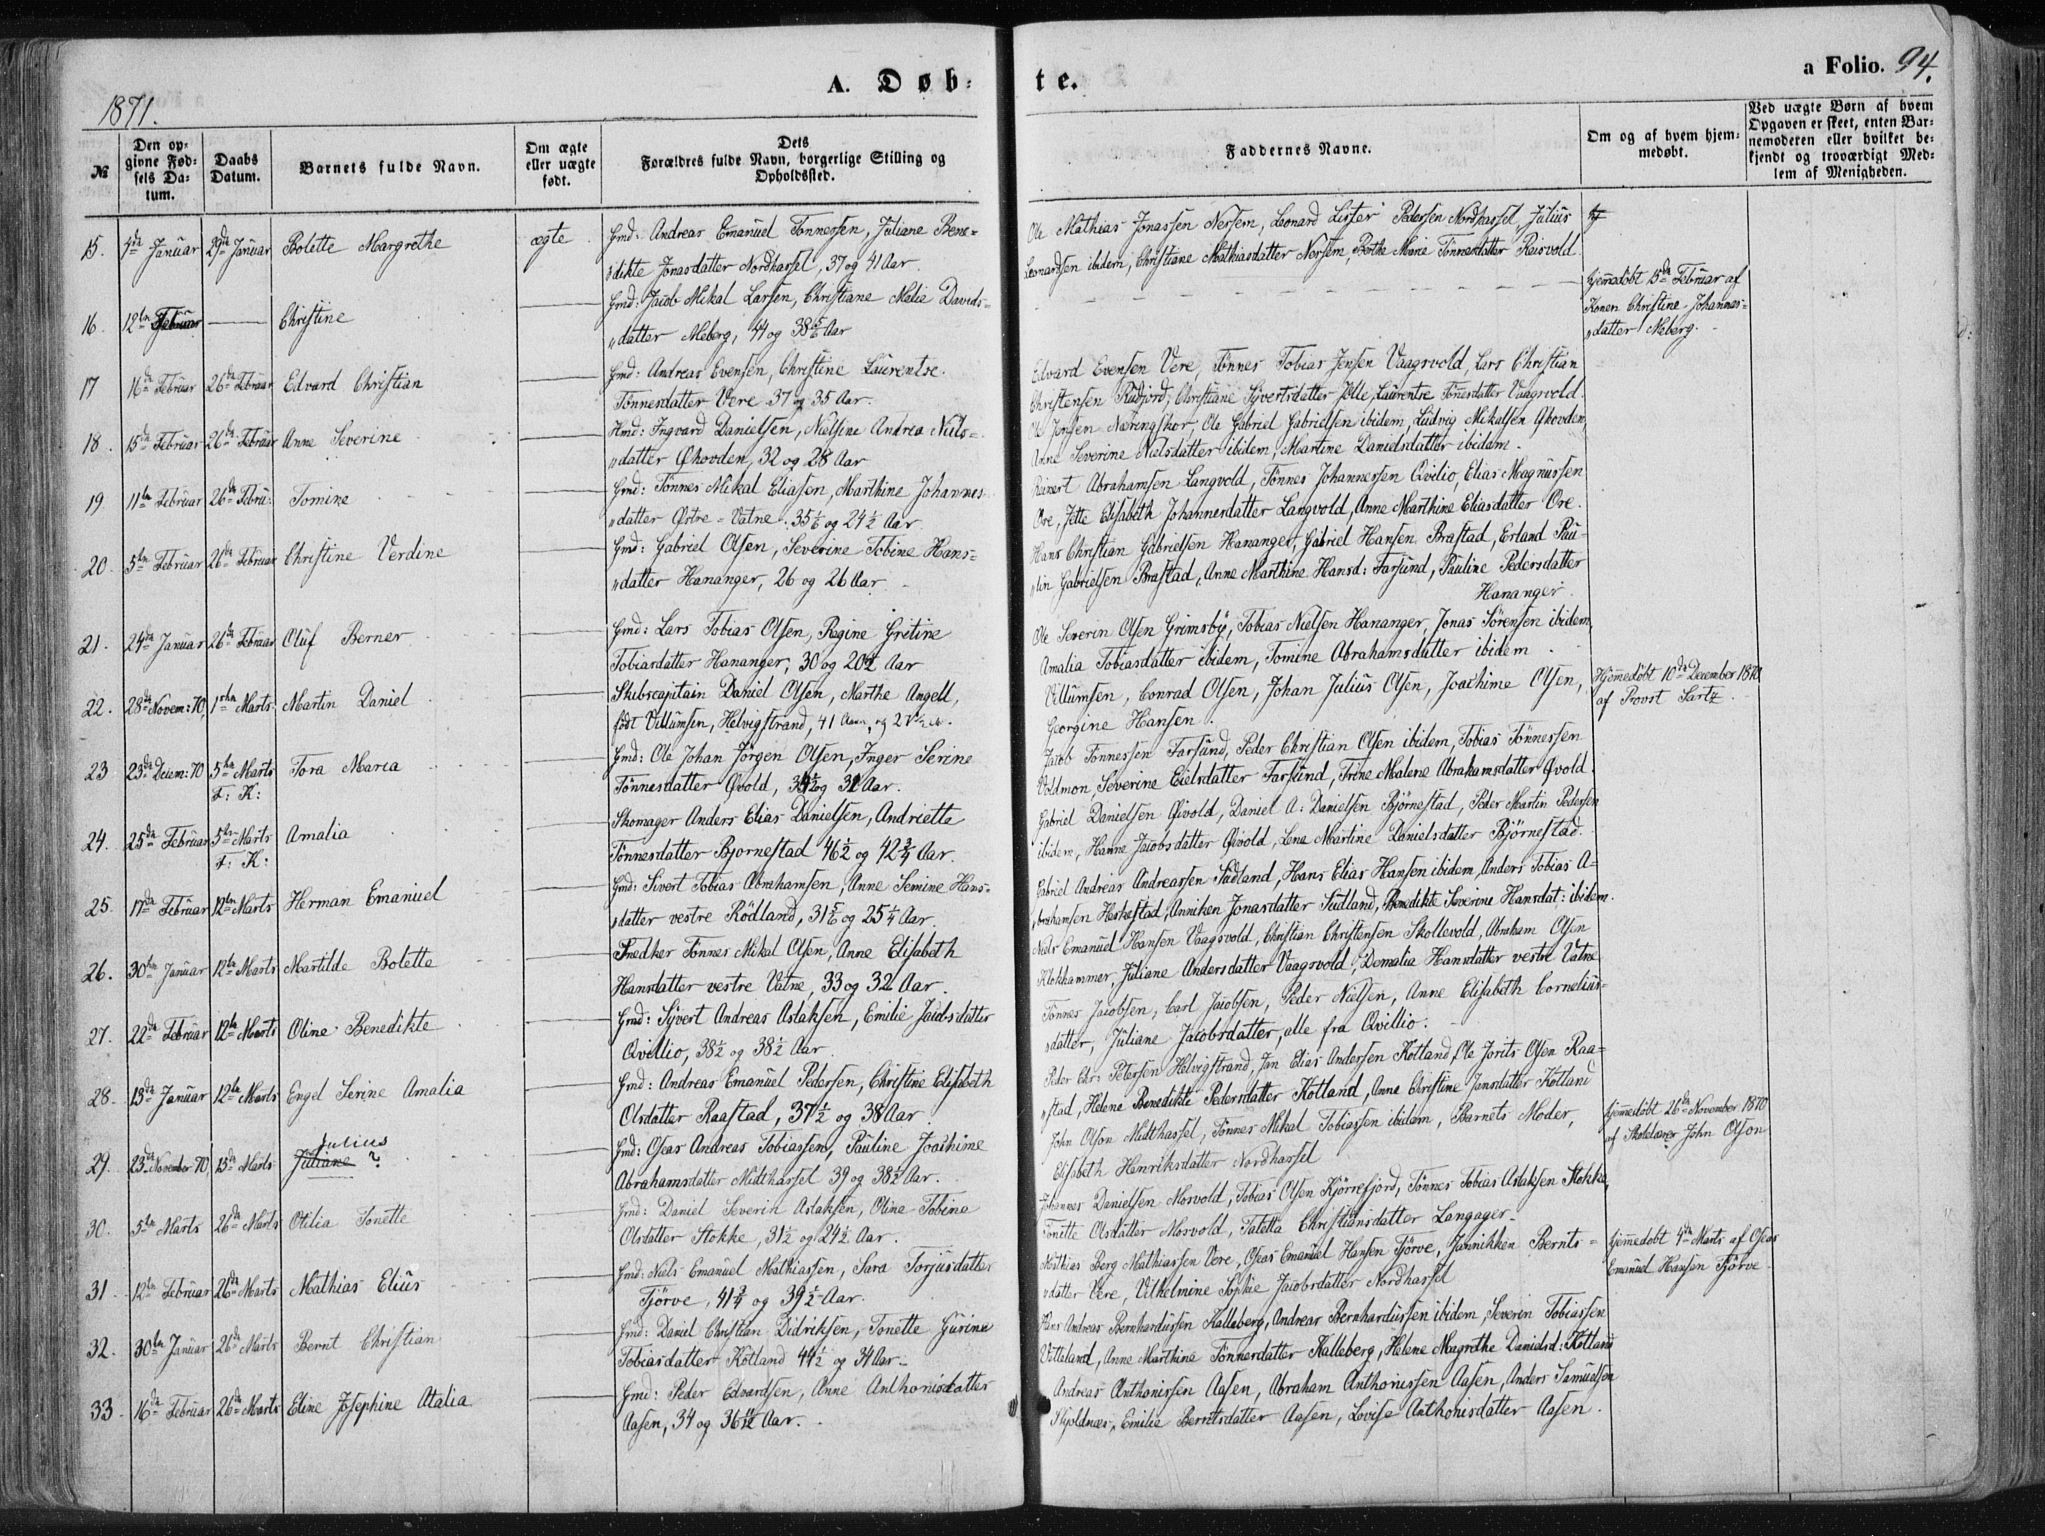 A. Døb- te.
a Folio. 94.
1871.
№
Den opgivne Fødsels Datum.
Daabs Datum.
Barnets fulde Navn.
Om ægte eller uægte født.
Dets Forældres fulde Navn, borgerlige Stilling og Opholdssted.
Faddernes Navne.
Om og af hvem hjemmedøbt.
Ved uægte Børn af hvem Opgaven er skeet, enten Barnemoderen eller hvilket bekjendt og troværdigt Medlem af Menigheden.
15. Januar 29de Januar Bolette Margrethe ægte Gmd: Andreas Emanuel Tønnessen, Juliane Bene=
"dikte Jonasdatter Nordhassel, 37 og 41 Aar.
Ole Mathias Jonassen Nersem, Leonard Lister Pedersen Nordhassel, Julius
Leonardsen ibidem, Christiane Mathiasdatter Nersem, Berthe Marie Tønnesdatter Reisvold.
16. 12te Februar Christine Gmd: Jacob Mikal Larsen, Christiane Malie Davids=
"datter Meberg, 44 og 38 5/6 Aar
hjemmedøbt 15de Februar af
Konen Christine Johannes=
"datter Meberg.
17 16de Februar 26de Februar Edvard Christian Gmd: Andreas Evensen, Christine Laurentse
Tønnesdatter Vere 37 og 35 Aar.
Edvard Evensen Vere, Tønnes Tobias Jensen Vaagsvold, Lars Christian
Christensen Rudjord, Christiane Syvertsdatter Jølle, Laurentse Tønnesdatter Vaagsvold.
18. 15de Februar 26de Februar Anne Severine Hmd: Ingvard Danielsen, Nielsine Andrea Niels=
"datter Øhovden, 32 og 28 Aar
Ole Jensen Næringskor, Ole Gabriel Gabrielsen ibidem, Ludvig Mikalsen Øhovden,
Anne Severine Nielsdatter ibidem, Martine Danielsdatter ibidem.
19 11te Februar 26de Febru: Tomine Gmd: Tønnes Mikal Eliassen, Marthine Johannes=
"datter Østre=Vatne. 35 1/6 og 24 1/2 Aar.
Reinert Abrahamsen Langvold, Tønnes Johannessen Qvilio, Elias Magnussen
Ore, Jette Elisabeth Johannesdatter Langvold, Anne Marthine Eliasdatter Ore.
20. 5te Februar 26de Februar Christine Verdine Gmd: Gabriel Olsen, Severine Tobine Hans=
"datter Hananger, 26 og 26 Aar.
Hans Christian Gabrielsen Hananger, Gabriel Hansen Brastad, Erland Pau=
"lin Gabrielsen Brastad, Anne Marthine Hansd: Farsund, Pauline Pedersdatter
Hananger.
21. 24de Januar 26de Februar Oluf Berner Gmd: Lars Tobias Olsen, Regine Gretine
Tobiasdatter Hananger, 30 og 20 1/2 Aar
Ole Severin Olsen Grimsby, Tobias Nielsen Hananger, Jonas Sørensen ibidem,
Amalia Tobiasdatter ibidem, Tomine Abrahamsdatter ibidem.
22. 28de Novem: 70, 1ste Marts Martin Daniel Skibscapitain Daniel Olsen, Marthe Angell,
født Villumsen, Helvigstrand, 41 Aar, og
Villumsen, Conrad Olsen, Johan Julius Olsen, Joachime Olsen,
Georgine Hansen.
Hjemmedøbt 10de December 1870,
af Provst Sartz.
23 23de Decem: 70 5te Marts F: K: Tora Maria Gmd: Ole Johan Jørgen Olsen, Inger Serine
Tønnesdatter Øvold, 34 1/2 og 31 Aar.
Jacob Tønnessen Farsund, Peder Christian Olsen ibidem, Tobias Tønnessen
Voldmon, Severine Eielsdatter Farsund, Trine Malene Abrahamsdatter Øvold.
24. 25de Februar 5te Marts F: K: Amalia Skomager Anders Elias Danielsen, Andriette
Tønnesdatter Bjørnestad 46 1/2 og 42 3/4 Aar.
Gabriel Danielsen Qivold, Daniel A: Danielsen Bjørnestad, Peder Martin Pedersen
ibidem, Hanne Jacobsdatter Qivold, Lena Martine Danielsdatter Bjørnestad.
25. 17de Februar 12te Marts Herman Emanuel Gmd: Sivert Tobias Abrahamsen, Anne Semine Hans=
"datter vestre Rødland, 31 5/6 og 25 1/4 Aar.
Gabriel Andreas Andreassen Sudland, Hans Elias Hansen ibidem, Anders Tobias A=
"brahamsen Heskestad, Anniken Jonasdatter Sudland, Benedikte Severine Hansdat: ibidem.
26. 30te Januar 12te Marts Martilde Bolette Snedker Tønnes Mikal Olsen, Anne Elisabeth
Hansdatter vestre Vatne, 33 og 32 Aar.
Niels Emanuel Hansen Vaagsvold, Christian Christensen Skollevold, Abraham Olsen
Klokhammer, Juliane Andersdatter Vaagsvold, Domalia Hansdatter vestre Vatne
27. 22de Februar 12te Marts Oline Benedikte Gmd: Syvert Andreas Aslaksen, Emilie Jacobsdatter
Qvillio, 38 1/2 og 38 1/2 Aar.
Tønnes Jacobsen, Carl Jacobsen, Peder Nielsen, Anne Elisabeth Cornelius=
"datter, Juliane Jacobsdatter, alle fra Qvillio.
28. 13de Januar 12te Marts Engel Serine Amalia Gmd: Andreas Emanuel Pedersen, Christine Elisabeth
Olsdatter Raastad, 37 1/2 og 38 Aar
Peder Chr: Petersen Helvigstrand, Jan Elias Andersen Kotland, Ole Jorits Olsen Raa=
"stad, Helene Benedikte Pedersdatter Kotland, Anne Christine Jansdatter Kotland
29. 23de November 70, 13de Marts Juliane Julius ? Gmd: Oseas Andreas Tobiassen, Pauline Joachime
Abrahamsdatter Midthassel 39 og 38 1/2 Aar.
John Olson Midthassel, Tønnes Mikal Tobiassen ibidem, Barnets Moder,
Elisabeth Henriksdatter Nordhassel
hjemmedøbt 26de November 1870
af Skolelærer John Olson
30. 5te Marts 26de Marts Otilia Tonette Gmd: Daniel Severin Aslaksen, Oline Tobine
Olsdatter Stokke, 31 1/2 og 24 1/2 Aar.
Johannes Danielsen Mosvold, Tobias Olsen Kjørrefjord, Tønnes Tobias Aslaksen Stokke,
Tonette Olsdatter Mosvold, Taletta Christiansdatter Langager.
31. 12te Februar 26de Marts Mathias Elius Gmd: Niels Emanuel Mathiassen, Sara Torjusdatter
Tjørve, 41 3/4 og 39 1/2 Aar.
Mathias Berg Mathiassen Vere, Oseas Emanuel Hansen Tjørve, Jannikken Bernts=
"datter Vere, Vilhelmine Sophie Jacobsdatter Nordhassel
hjemmedøbt 4de Marts af Oseas
Emanuel Hansen Tjørve.
32. 30te Januar 26de Marts Bernt Christian Gmd: Daniel Christian Didriksen, Tonette Gurine
Tobiasdatter Kotland 44 1/2 og 34 Aar.
Hans Andreas Bernhardussen Kalleberg, Andreas Bernhardussen ibidem, Severin Tobiassen
Vetteland, Anne Marthine Tønnesdatter Kalleberg, Helene Magrethe Danielsd: Kotland
33. 16de Februar 26de Marts Eline Josephine Atalia Gmd: Peder Edvardsen, Anne Anthonisdatter
Aasen, 34 og 36 Aar.
Andreas Anthonissen Aasen, Abraham Anthonissen Aasen, Anders Samuelsen
Skjoldnæs, Emilie Berntsdatter Aasen, Lovise Anthonisdatter Aasen.